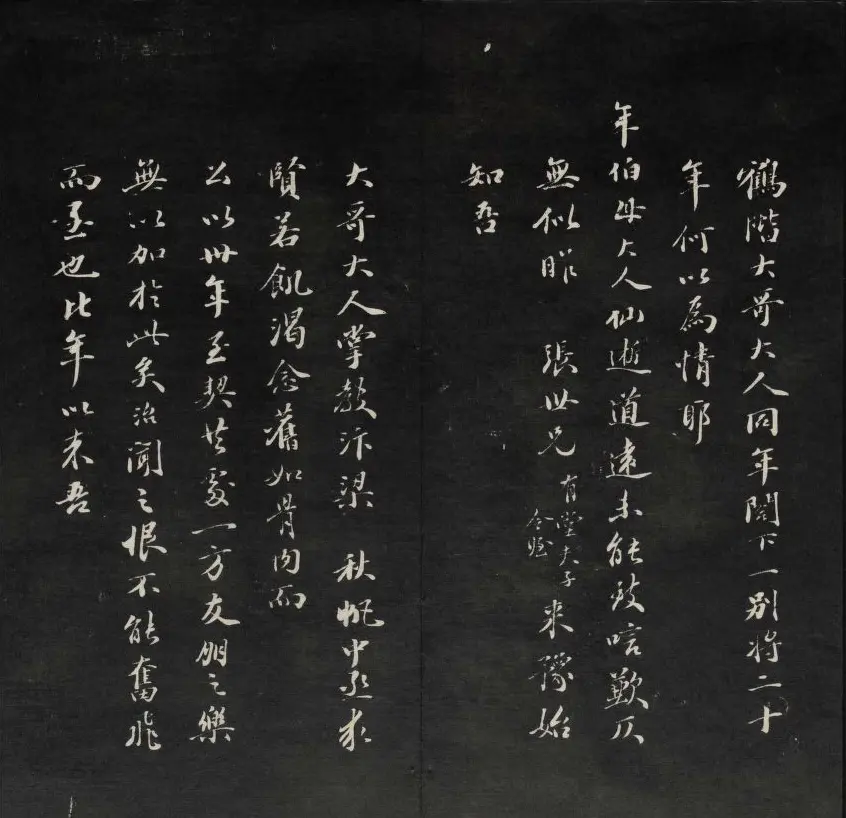 鶴階大哥大人同年閣下一別將二十
年何以為情耶
年伯母大人仙逝道遠未能致唁歉仄
無似昨 張世兄有堂夫子令姪来豫始
知吾
大哥大人掌教汴梁 秋帆中丞求
賢若飢渴念舊如骨肉而
公以卅年至契共處一方友朋之樂
無以加於此矣治聞之恨不能奮飛
而至也比年以来吾